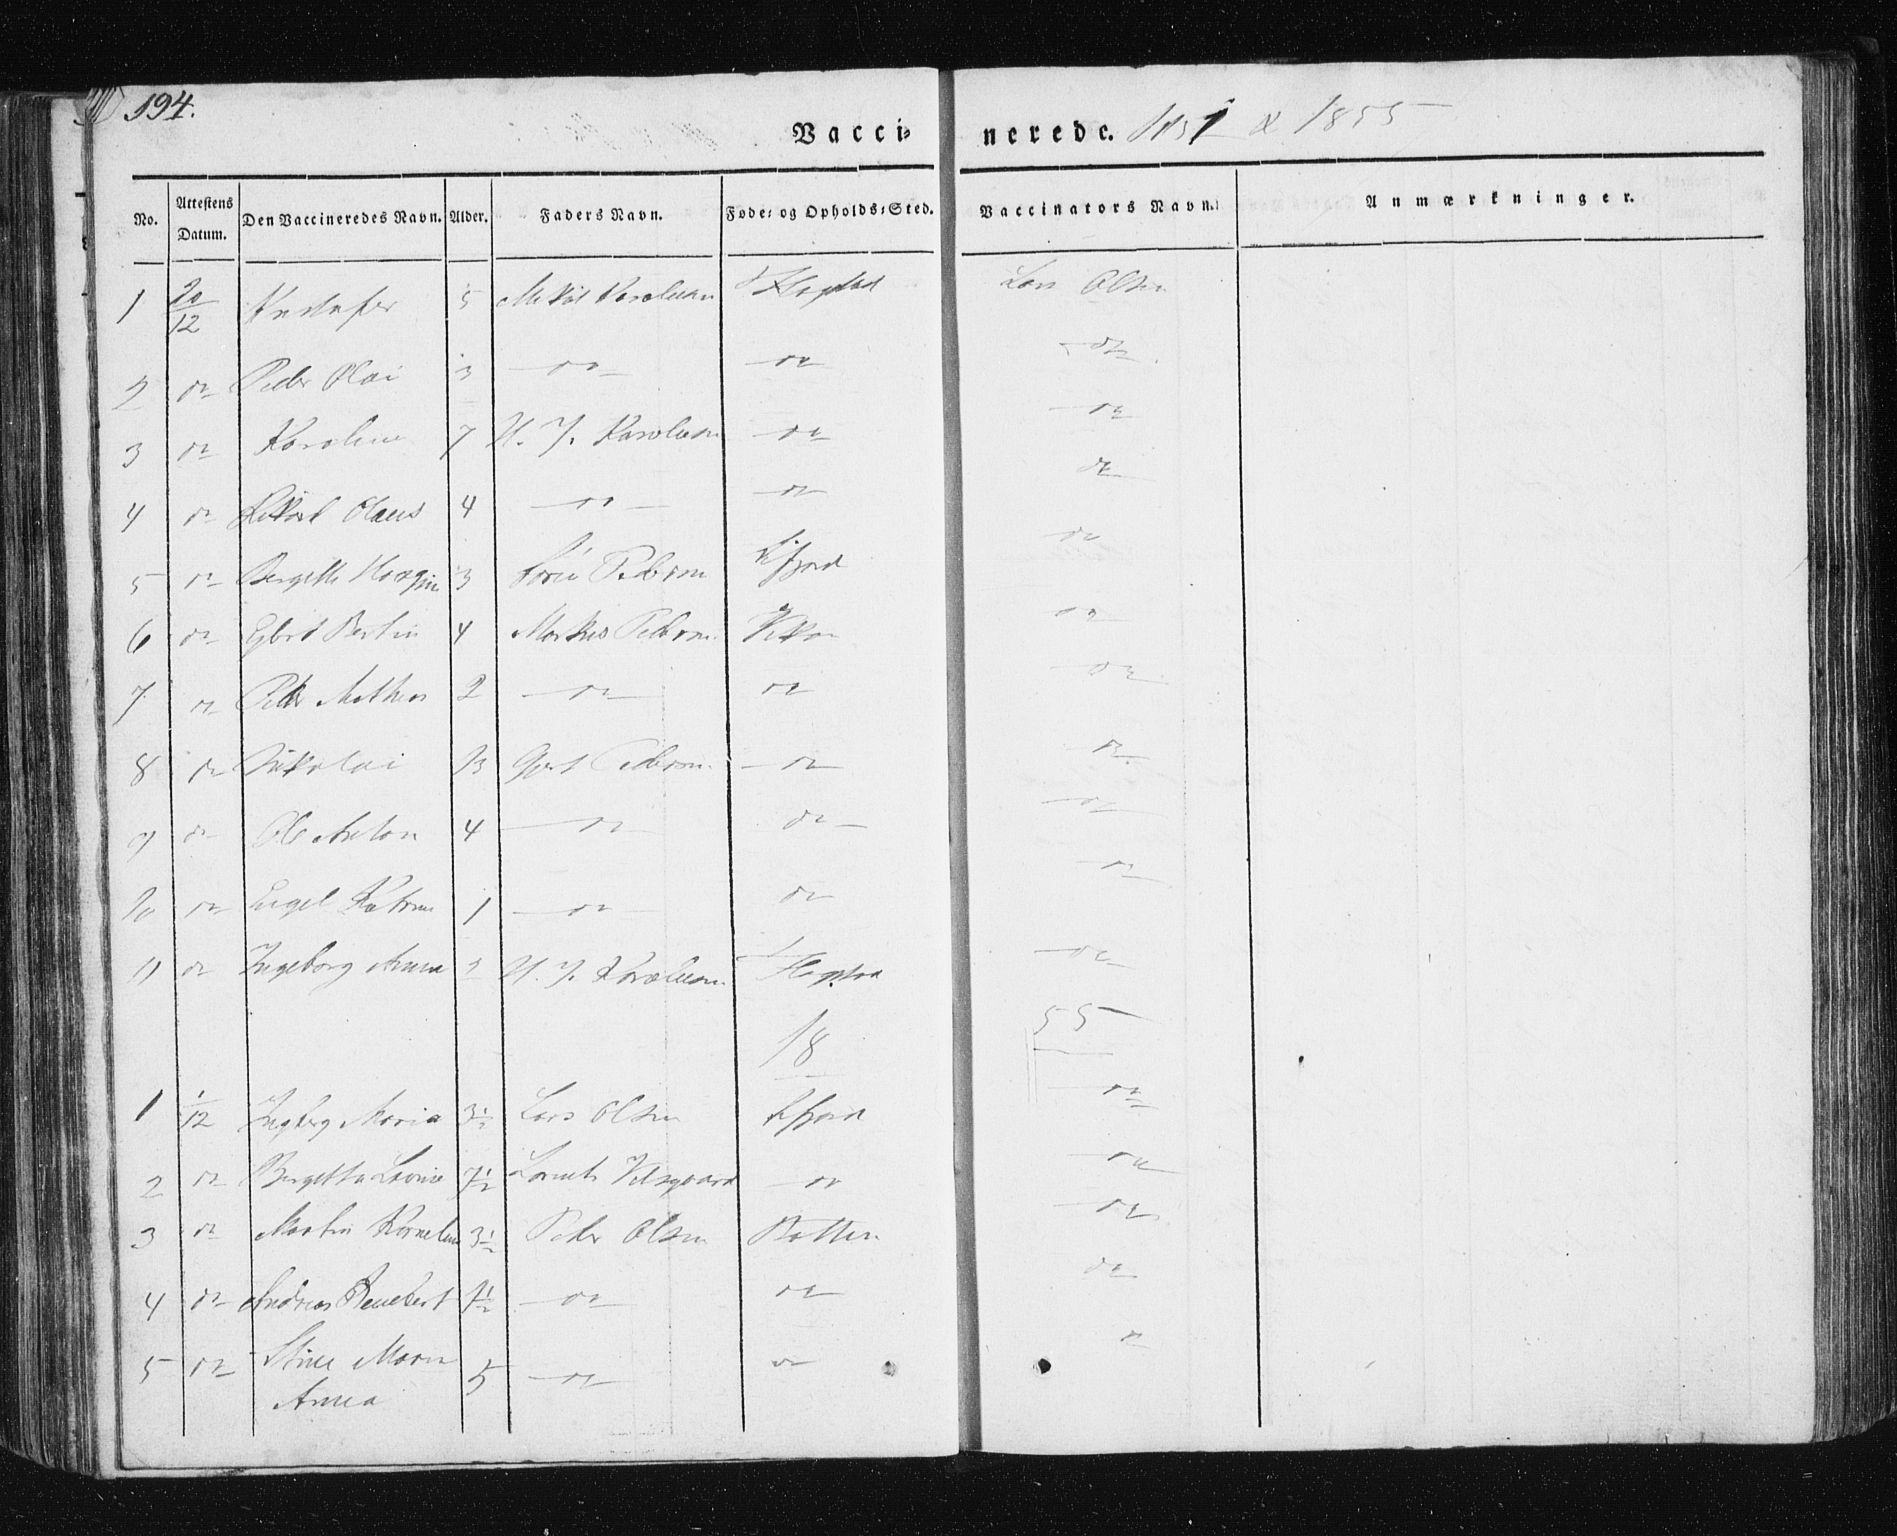 194.
Vacci= nerede. 1851 & 1855
No. Attestens Datum. Den Vaccineredes Navn. Alder. Faders Navn. Føde= og Opholds=Sted. Vaccinators Navn. Anmærkninger.
1 20/12 Kristofer 5 Mikal Karolusen Hopstad Lars Olsen
2 do Peder Olai 3 do do do
3 do Karoline 7 H. J. Karolusen do do
4 do Rikart Olaus 4 do do do
5 do Bergitte 3 Sørn Pedersen Kifjord do
6 do Bertin 4 Markus Pedersen Vikan do
7 do Peder Matheus 2 do do do
8 do Nikolai 13 Gert Pedersen do do
9 do Ole Anton 4 do do do
10 do Engel Katrine 1 do do do
11 do Ingeborg Anna 2 H. J. Karolusen Hopstad do
18 55
1 1/12 Ingeborg Maria 3½ Lars Olsen Kifjord do
2 do Bergetta Lovise 7½ Lornts do do
3 do Martin Kornelius 3½ Peder Olsen Botten do
4 do Andreas 1½ do do do
5 do Stine Maren 5 do do do
Anna